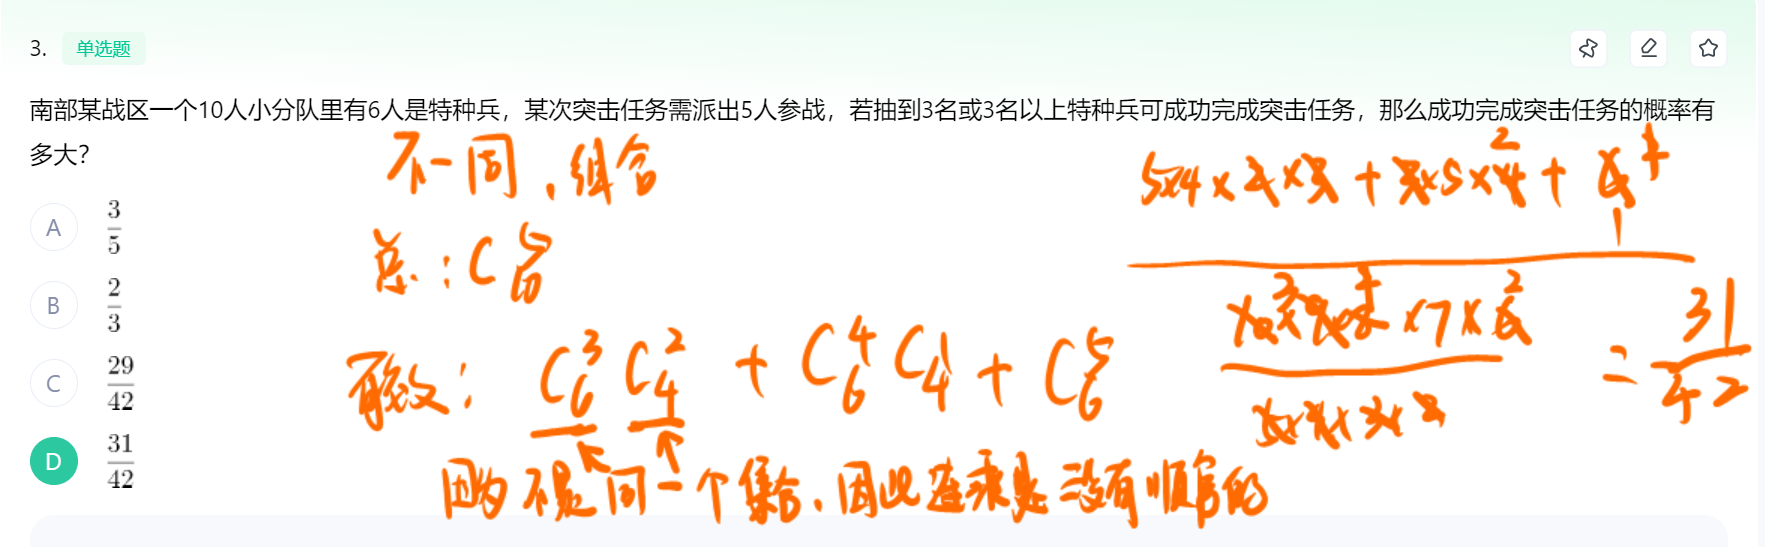 3. 单选题
南部某战区一个10人小分队里有6人是特种兵，某次突击任务需派出5人参战，若抽到3名或3名以上特种兵可成功完成突击任务，那么成功完成突击任务的概率有
多大？
A 3/5
B 2/3
C 29/42
D 31/42
不一同，组合
总：C₁₀⁵
C₆³C₄² + C₆⁴C₄¹ + C₆⁵
因为不是同一个集合，因此连乘是没有顺序的
= 31/42